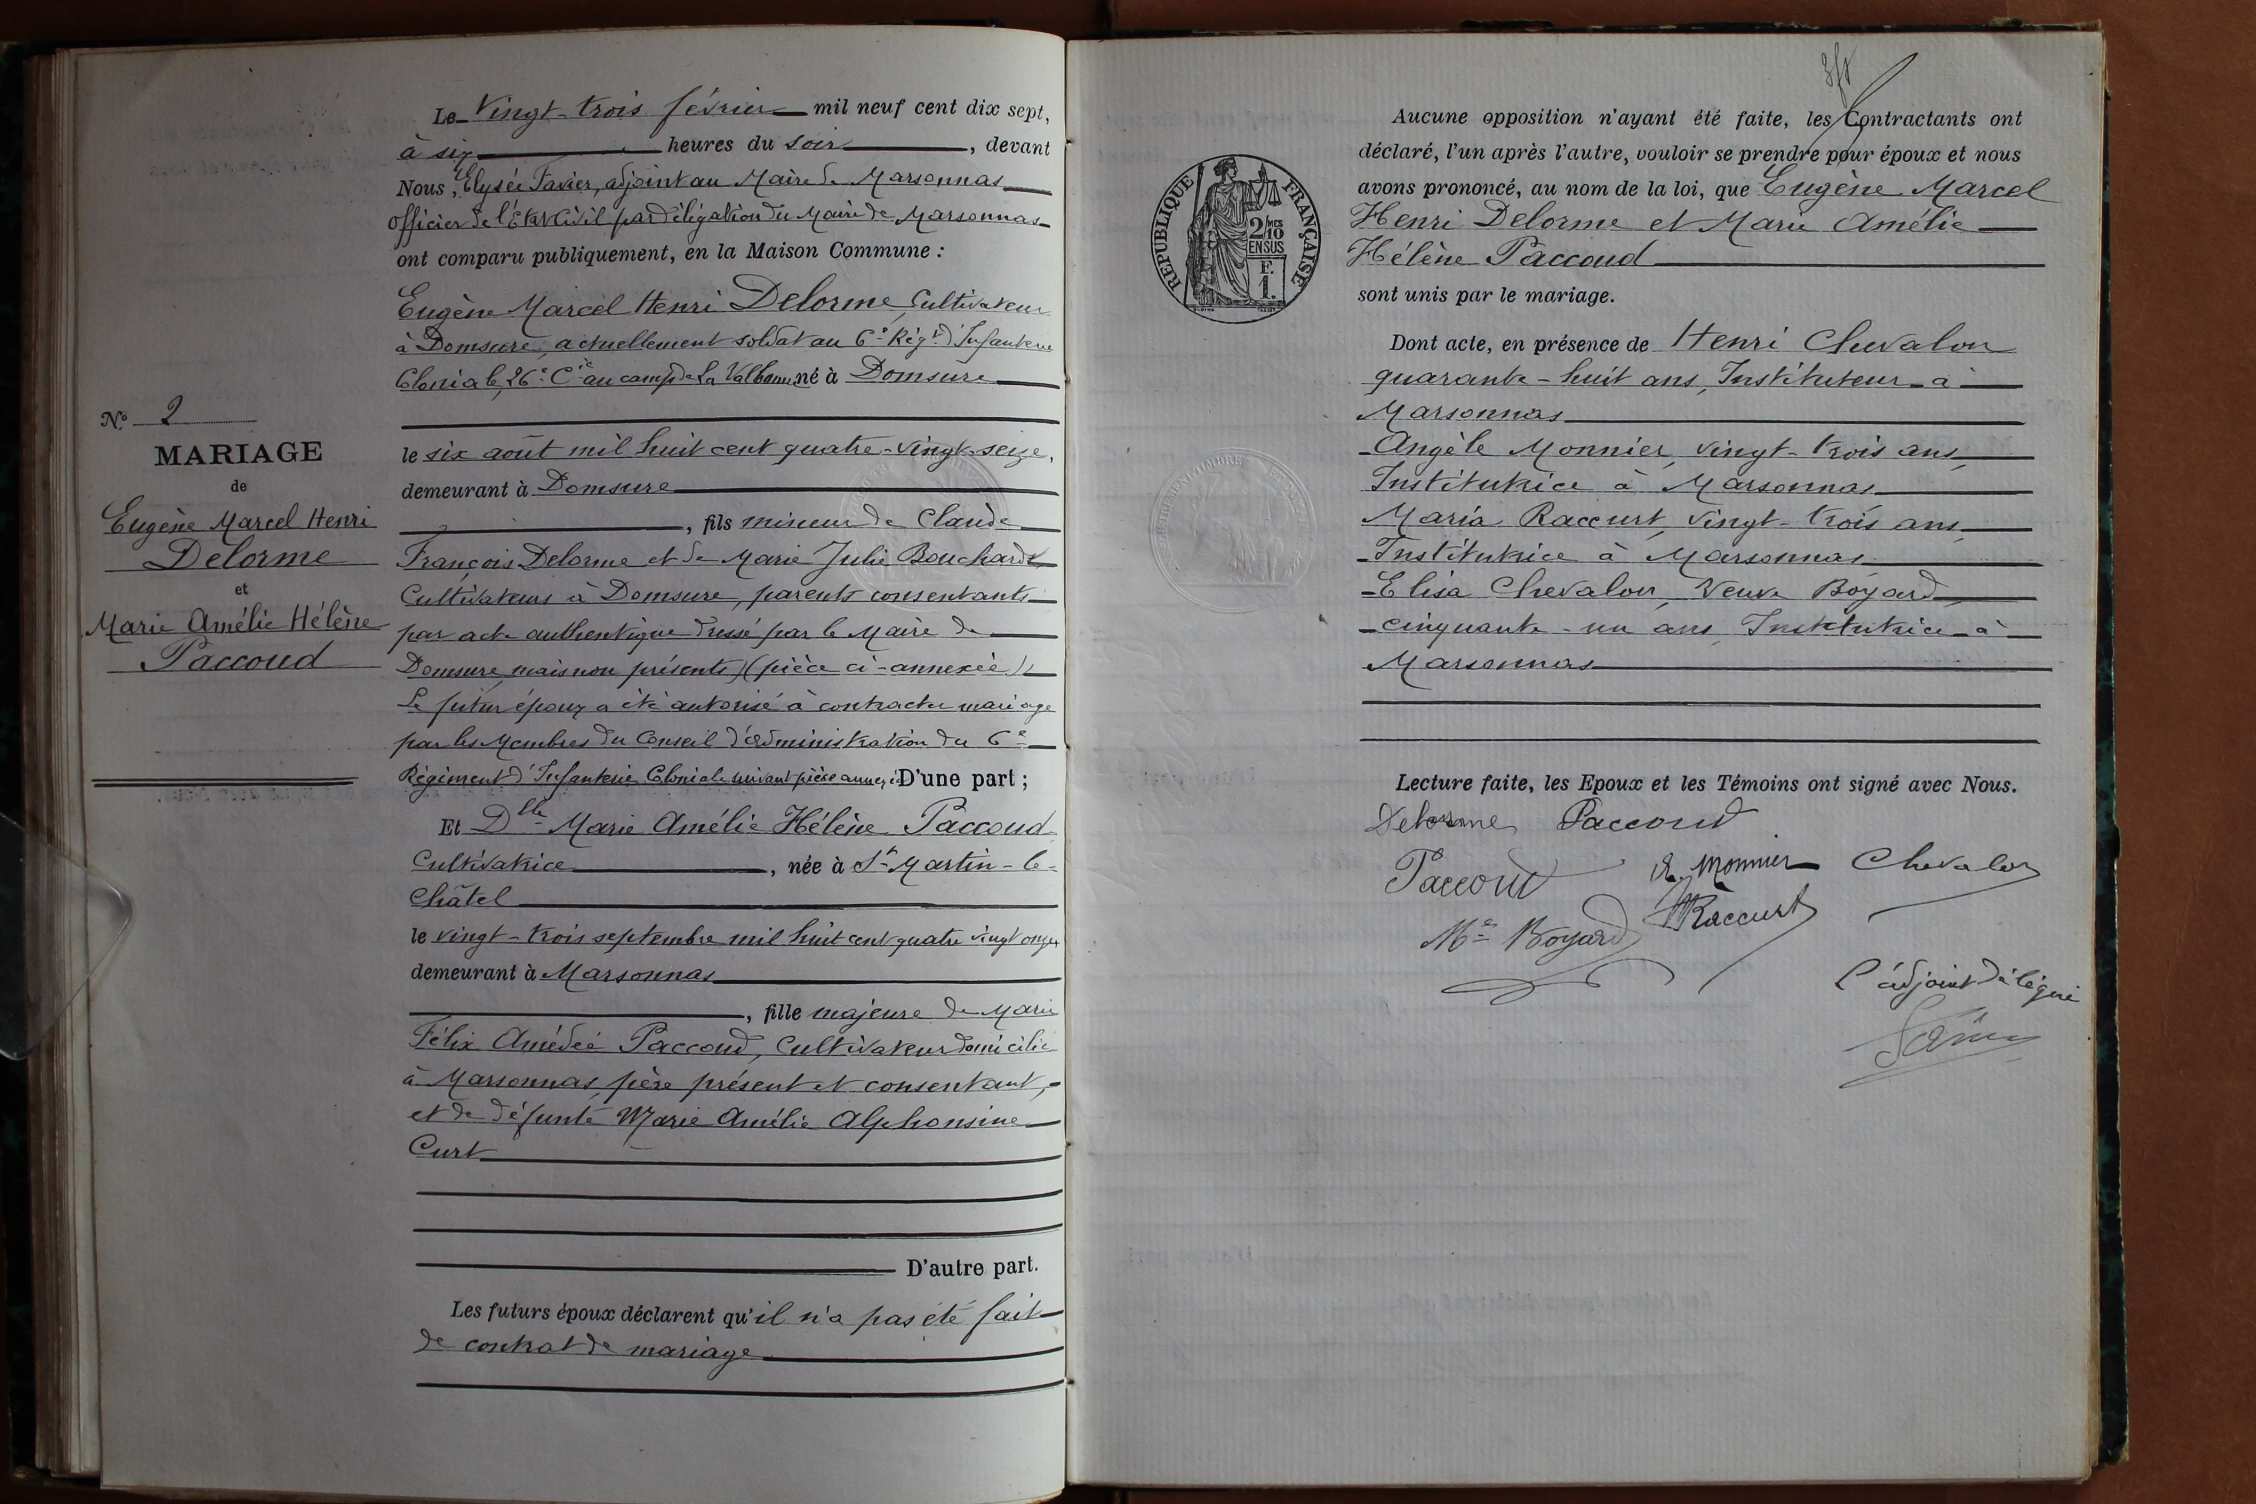 N° 2
MARIAGE
de
Eugène Marcel Henri
Delorme
et
Marie Amélie Hélène
Paccoud
Le Vingt-trois février mil neuf cent dix sept,
à six heures du soir, devant
Nous, Elysée Favier, adjoint au Maire de Marsonnas
officier de l'Etat Civil par délégation du Maire de Marsonnas
ont comparu publiquement, en la Maison Commune :
Eugène Marcel Henri Delorme, Cultivateur
à Domsure, actuellement soldat au 6e Régt d'Infanterie
Coloniale, 26e Cie au camp de La Valbonne né à Domsure
le six août mil huit cent quatre-vingt-seize,
demeurant à Domsure
, fils mineur de Claude
François Delorme et de Marie Julie Bouchard
Cultivateurs à Domsure, parents consentants
par acte authentique dressé par le Maire de
Domsure, mais non présents (pièce ci-annexée)
Le futur époux a été autorisé à contracter mariage
par les Membres du Conseil d'Administration du 6e
Régiment d'Infanterie Coloniale suivant pièce annexée D'une part ;
Et Dlle Marie Amélie Hélène Paccoud
Cultivatrice, née à St Martin-le-
Châtel
le vingt-trois septembre mil huit cent quatre vingt onze
demeurant à Marsonnas
, fille majeure de Marie
Félix Amédée Paccoud, Cultivateur domicilié
à Marsonnas, père présent et consentant,
et de défunte Marie Amélie Alphonsine
Curt
D'autre part.
Les futurs époux déclarent qu'il n'a pas été fait
de contrat de mariage
RÉPUBLIQUE FRANÇAISE
2/10 MES
EN SUS
F.
1.
Aucune opposition n'ayant été faite, les Contractants ont
déclaré, l'un après l'autre, vouloir se prendre pour époux et nous
avons prononcé, au nom de la loi, que Eugène Marcel
Henri Delorme et Marie Amélie
Hélène Paccoud
sont unis par le mariage.
Dont acte, en présence de Henri Chevalon
quarante-huit ans, Instituteur à
Marsonnas
Angèle Monnier, vingt-trois ans,
Institutrice à Marsonnas
Maria Raccurt, vingt-trois ans,
Institutrice à Marsonnas
Elisa Chevalon, Veuve Boyard,
cinquante-un ans, Institutrice à
Marsonnas
Lecture faite, les Epoux et les Témoins ont signé avec Nous.
Delorme Paccoud
Paccoud A. Monnier Chevalon
Me Boyard MRaccurt
L'adjoint délégué
Favier